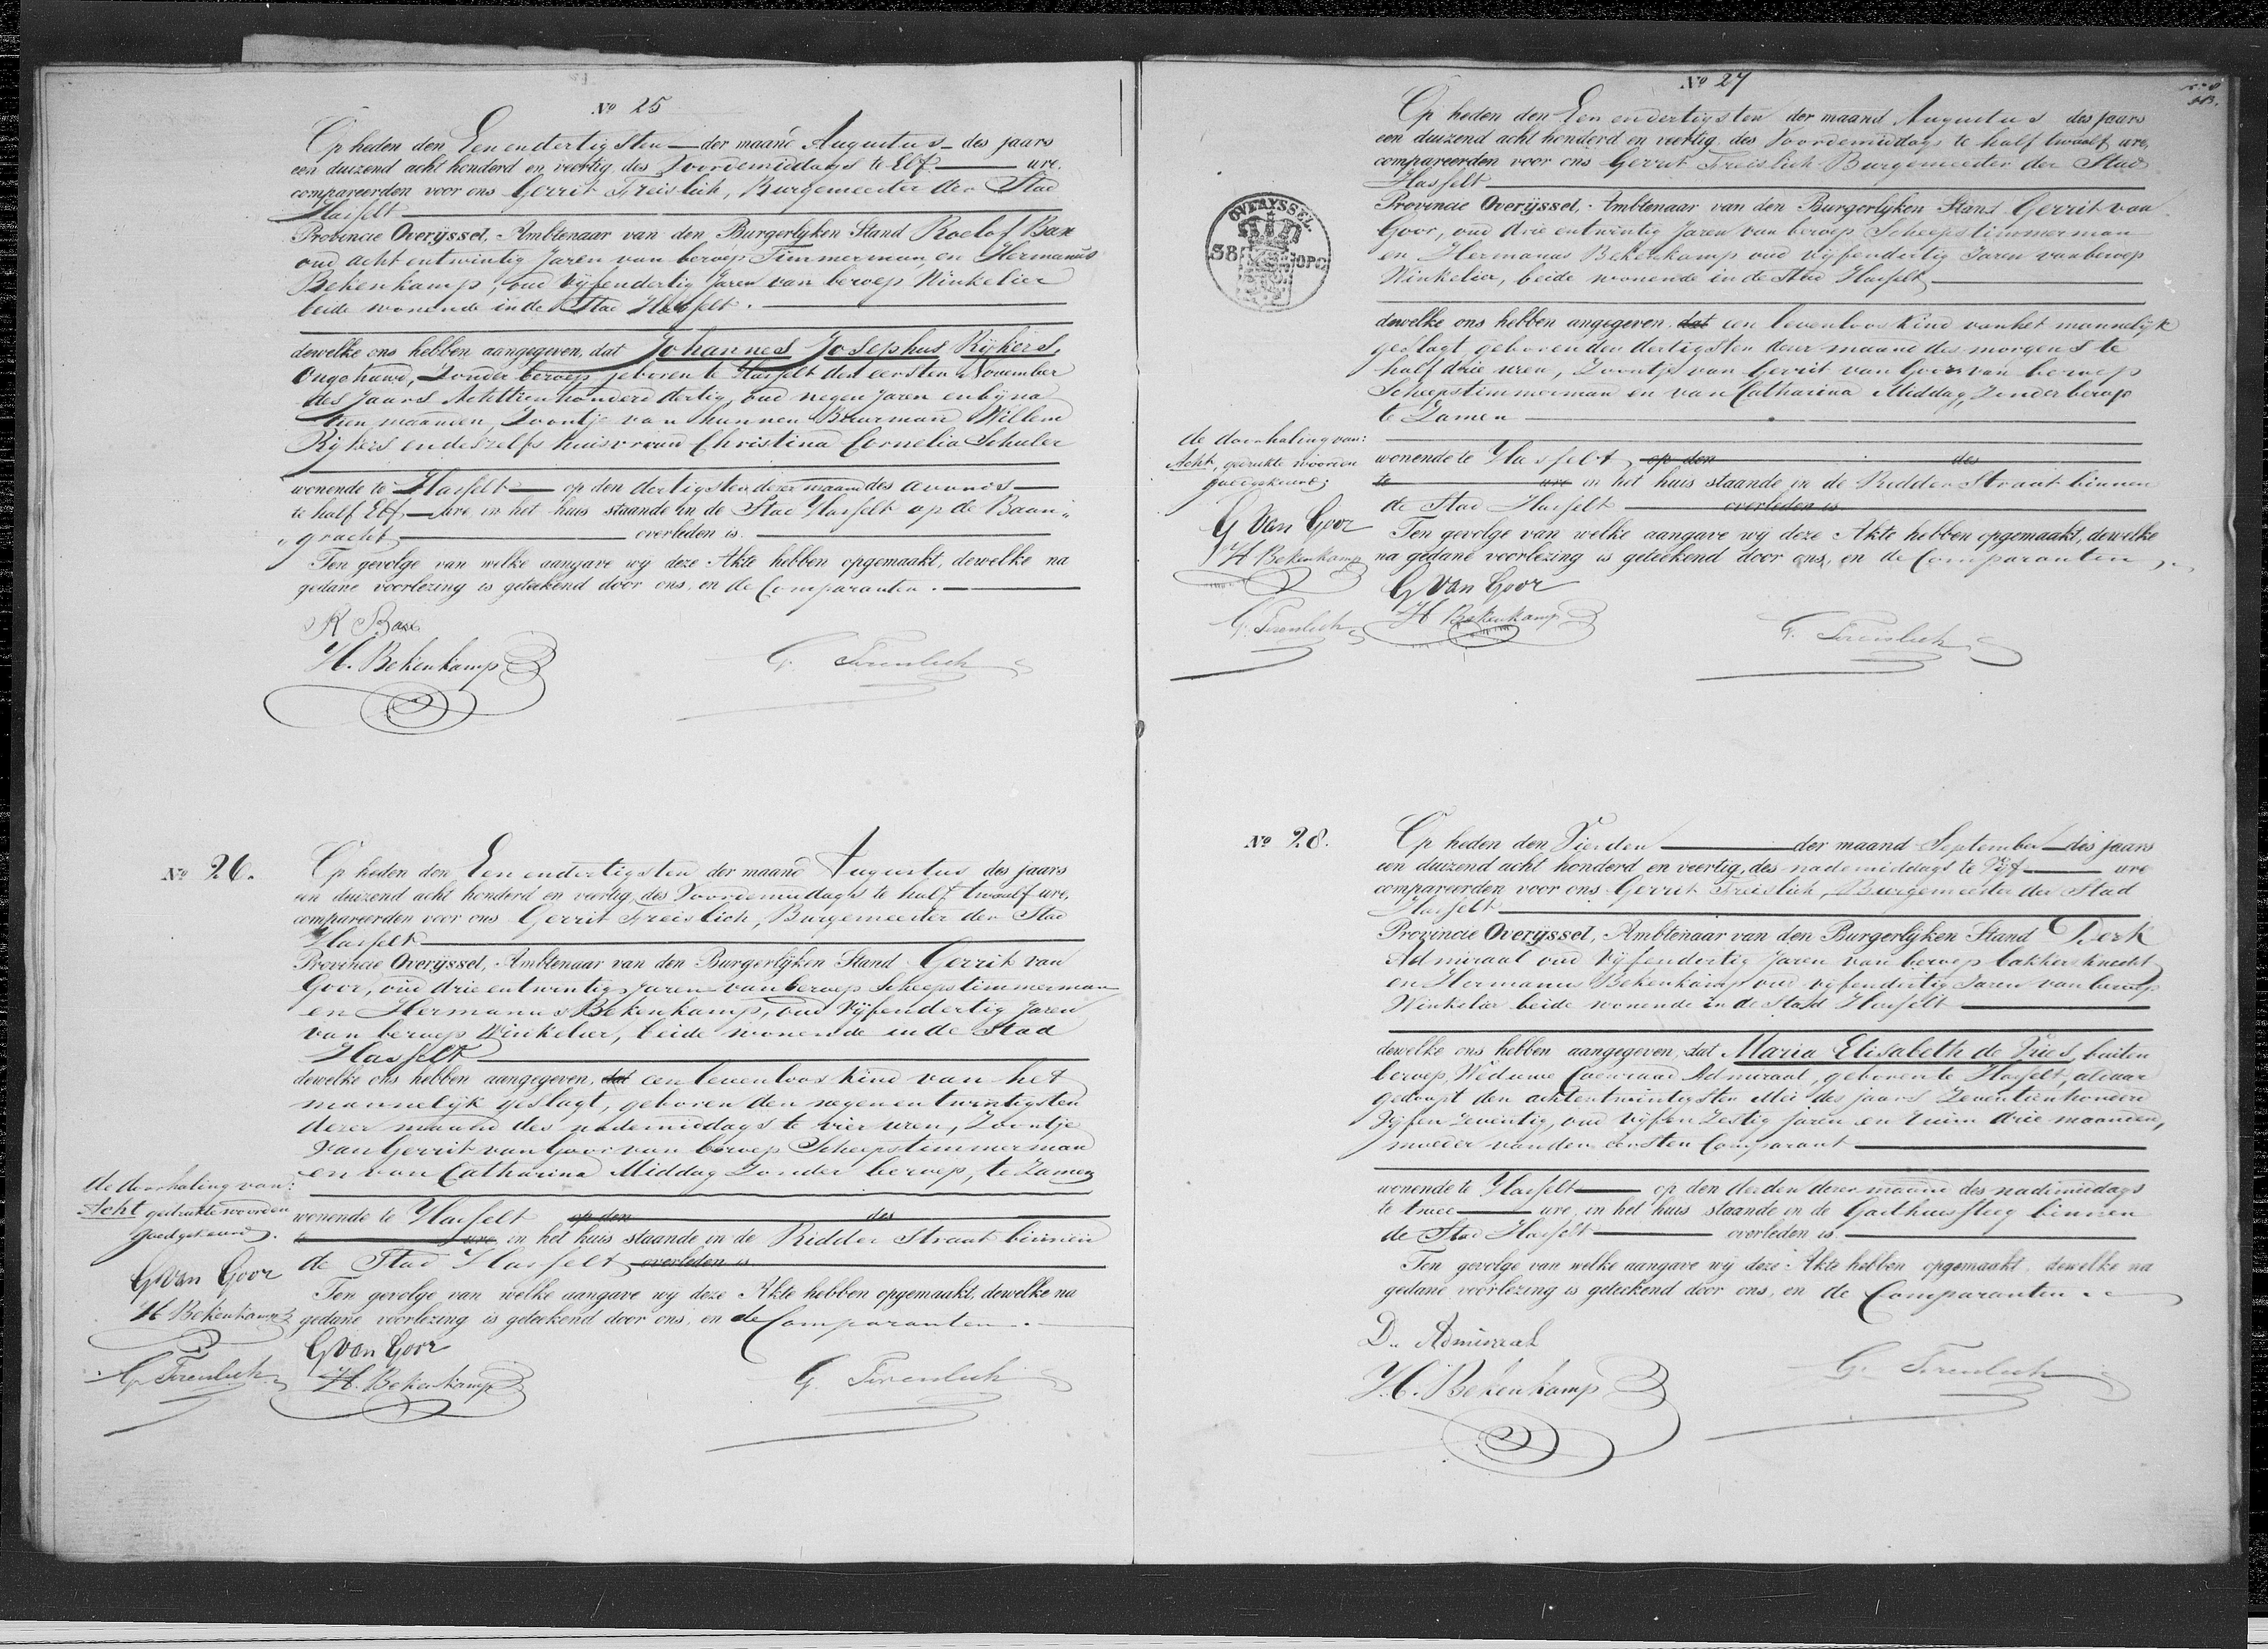 Nº 25
Op heden den Een endertigsten der maand Augustus des jaars
een duizend acht honderd en veertig, des Voordemiddags te Elf ure,
compareerden voor ons Gerrit Freislich, Burgemeester der Stad
Hasselt
Provincie Overijssel, Ambtenaar van den Burgerlyken Stand Roelof Bax
oud acht entwintig Jaren van beroep Timmerman, en Hermanus
Bekenkamp, oud vijfendertig Jaren van beroep Winkelier
beide wonende in de Stad Hasselt.
dewelke ons hebben aangegeven, dat Johannes Josephus Rijkers,
Ongehuwd, Zonder beroep geboren te Hasselt den eersten November
des Jaars Achttienhonderd dertig, oud negen Jaren en bijna
tien maanden, Zoontje van hunnen Buurman Willem
Rijkers en deszelfs huisvrouw Christina Cornelia Schuler
wonende te Hasselt op den dertigsten dezer maand des avonds
te half Elf ure, in het huis staande in de Stad Hasselt op de Baan„
„gracht overleden is.
Ten gevolge van welke aangave wy deze Akte hebben opgemaakt, dewelke na
gedane voorlezing is geteekend door ons, en de Comparanten.
R Bax
H. Bekenkamp
G. Freislich
Nº 26.
Op heden den Een endertigsten der maand Augustus des jaars
een duizend acht honderd en veertig, des Voordemiddags te half twaalf ure,
compareerden voor ons Gerrit Freislich, Burgemeester der Stad
Hasselt
Provincie Overijssel, Ambtenaar van den Burgerlyken Stand Gerrit van
Goor, oud drie entwintig Jaren van beroep Scheepstimmerman
en Hermanus Bekenkamp, oud Vijfendertig Jaren
van beroep Winkelier, beide wonende in de Stad
Hasselt
dewelke ons hebben aangegeven, dat een levenloos kind van het
mannelijk geslagt, geboren den negen en twintigsten
dezer maand des nademiddags te vier uren, Zoontje
van Gerrit van Goor van beroep Scheepstimmerman
en van Catharina Middag Zonder beroep, te Zamen
wonende te Hasselt op den des
te ure, in het huis staande in de Ridder Straat binnen
de Stad Hasselt overleden is
Ten gevolge van welke aangave wy deze Akte hebben opgemaakt, dewelke na
gedane voorlezing is geteekend door ons, en de Comparanten.
de doorhaling van:
Acht gedrukte woorden
goedgekeurd.
G van Goor
H Bekenkamp
G. Freislich
G van Goor
H. Bekenkamp
G. Freislich
Nº 27
Op heden den Een endertigsten der maand Augustus des jaars
een duizend acht honderd en veertig, des Voordemiddags te half twaalf ure,
compareerden voor ons Gerrit Freislich Burgemeester der Stad
Hasselt
Provincie Overijssel, Ambtenaar van den Burgerlyken Stand Gerrit van
Goor, oud drie entwintig Jaren van beroep Scheepstimmerman
en Hermanus Bekenkamp oud Vijfendertig Jaren van beroep
Winkelier, beide wonende in de Stad Hasselt
OVERYSSEL
38 OPC
dewelke ons hebben angegeven, dat een levenloos Kind van het mannelijk
geslagt geboren den dertigsten dezer maand des morgens te
half drie uren, Zoontje van Gerrit van Goor van beroep
Scheepstimmerman en van Catharina Middag, Zonder beroep
te Zamen
wonende te Hasselt op den des
te ure in het huis staande in de Ridder Straat binnen
de Stad Hasselt overleden is
Ten gevolge van welke aangave wy deze Akte hebben opgemaakt, dewelke
na gedane voorlezing is geteekend door ons, en de Comparanten
de doorhaling van:
Acht, gedrukte woorden
goedgekeurd;
G Van Goor
H Bekenkamp
G. Freislich
G Van Goor
H Bekenkamp
G. Freislich
Nº 28.
Op heden den Vierden der maand September des jaars
een duizend acht honderd en veertig, des nademiddags te Vijf ure
compareerden voor ons Gerrit Freislich, Burgemeester der Stad
Hasselt
Provincie Overijssel, Ambtenaar van den Burgerlyken Stand Derk
Admiraal oud Vijfendertig Jaren van beroep bakkersknecht
en Hermanus Bekenkamp oud vijfendertig Jaren van beroep
Winkelier beide wonende in de Stad Hasselt
dewelke ons hebben aangegeven, dat Maria Elisabeth de Vries, buiten
beroep, Weduwe Coenraad Admiraal, geboren te Hasselt, aldaar
gedoopt den achtentwintigsten Mei des jaars Zeventienhonderd
Vijfenzeventig, oud vijfenzestig jaren en ruim drie maanden,
moeder van den eersten Comparant
wonende te Hasselt op den derden dezer maand des nademiddags
te twee ure, in het huis staande in de Gasthuissteeg binnen
de Stad Hasselt overleden is.
Ten gevolge van welke aangave wy deze Akte hebben opgemaakt, dewelke na
gedane voorlezing is geteekend door ons, en de Comparanten
D. Admiraal
H. Bekenkamp
G. Freislich